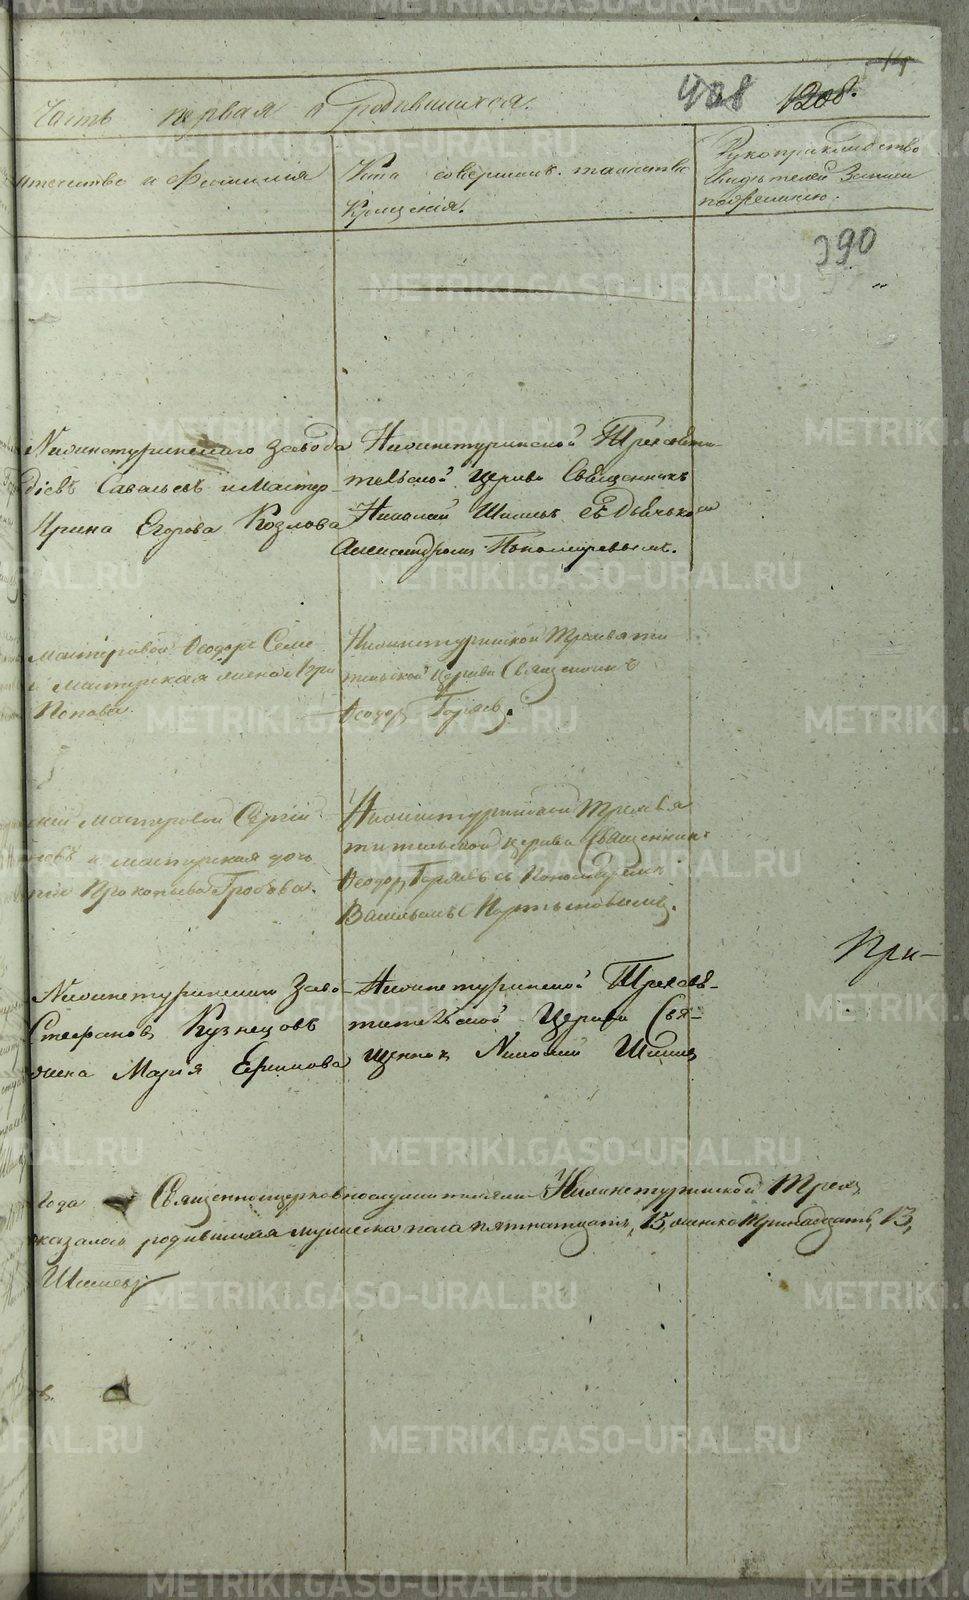 14
Часть первая о Родившихся. 408 1208.
отечество и Фамилия
Кто совершилъ таинство
Крещенія.
Рукоприкладство
свидѣтелей Записи
по желанію.
390
Нижнетуринскаго завода
Савельевъ и Мастер-
Ирина Егорова Козлова
Нижнетуринской Трехсвяти-
тельской Церкви Священникъ
Николай Шишевъ съ Дьячкомъ
Александромъ Пономаревымъ.
Мастеровой Ѳеодоръ Семе
Мастерская жена
Попова.
Нижнетуринской Трехсвяти
тельской Церкви Священникъ
Ѳеодоръ Горяевъ.
ской Мастеровой Сергій
новъ и мастерская дочь
Прокопьева Гробова.
Нижнетуринской Трехсвя
тительской церкви Священникъ
Ѳеодоръ Горяевъ съ Пономаремъ
Васильемъ Мартыновымъ.
При-
Нижнетуринскаго Заво-
Стефановъ Кузнецовъ
жена Марія Ефимова
Нижнетуринской Трехсвя-
тительской Церкви Свя-
щенникъ Николай Шишевъ
года Священноцерковнослужителями Нижнетуринской Трехъ
оказалось родившихся мужеска пола пятнатцать, 15, женска тринадцать, 13,
Шишевъ
METRIKI.GASO-URAL.RU